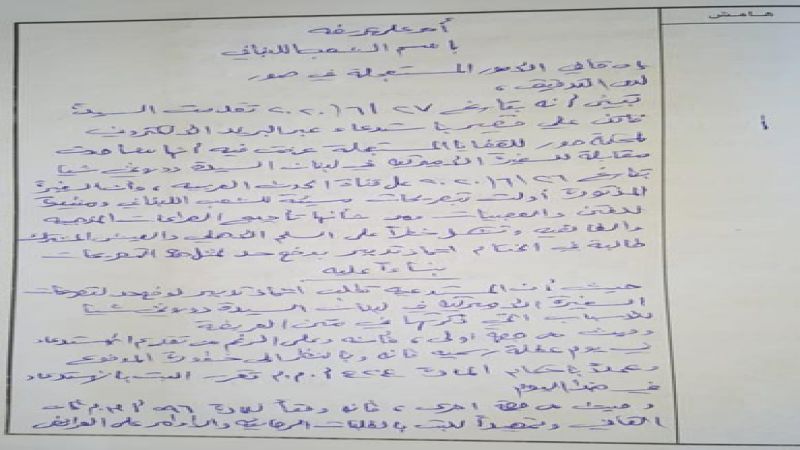 هامش
أمر على عريضة
باسم الشعب اللبناني
إن قاضي الأمور المستعجلة في صور
لدى التدقيق،
تبين أنه بتاريخ ٢٧/٦/٢٠٢٠ تقدمت السيدة
فاتن علي قصير باستدعاء عبر البريد الالكتروني
لمحكمة صور للقضايا المستعجلة عرضت فيه أنها شاهدت
مقابلة للسفيرة الأميركية في لبنان السيدة دوروثي شيا
بتاريخ ٢٦/٦/٢٠٢٠ على قناة الحدث العربية، وأن السفيرة
المذكورة أدلت بتصريحات مسيئة للشعب اللبناني ومثيرة
للفتن والعصبيات ومن شأنها تأجيج الصراعات المذهبية
والطائفية وتشكل خطراً على السلم الأهلي والعيش المشترك
طالبة في الختام اتخاذ تدبير بوضع حد لمثل هذه التصريحات
بناءً عليه
حيث أن المستدعية تطلب اتخاذ تدبير لوضع حد لتصريحات
السفيرة الأميركية في لبنان السيدة دوروثي شيا
للأسباب التي ذكرتها في متن العريضة
وحيث من جهة أولى، فأنه وعلى الرغم من تقديم الاستدعاء
في يوم عطلة رسمية فانه وبالنظر الى خطورة الموضوع
وعملاً بأحكام المادة أ.م.م. تقرر البت بالاستدعاء
في هذا اليوم
وحيث من جهة اخرى، فانه وفقاً للمادة أ.م.م. فان
القاضي وتمهيداً للبت بالطلبات الرجائية والأوامر على العرائض
أ